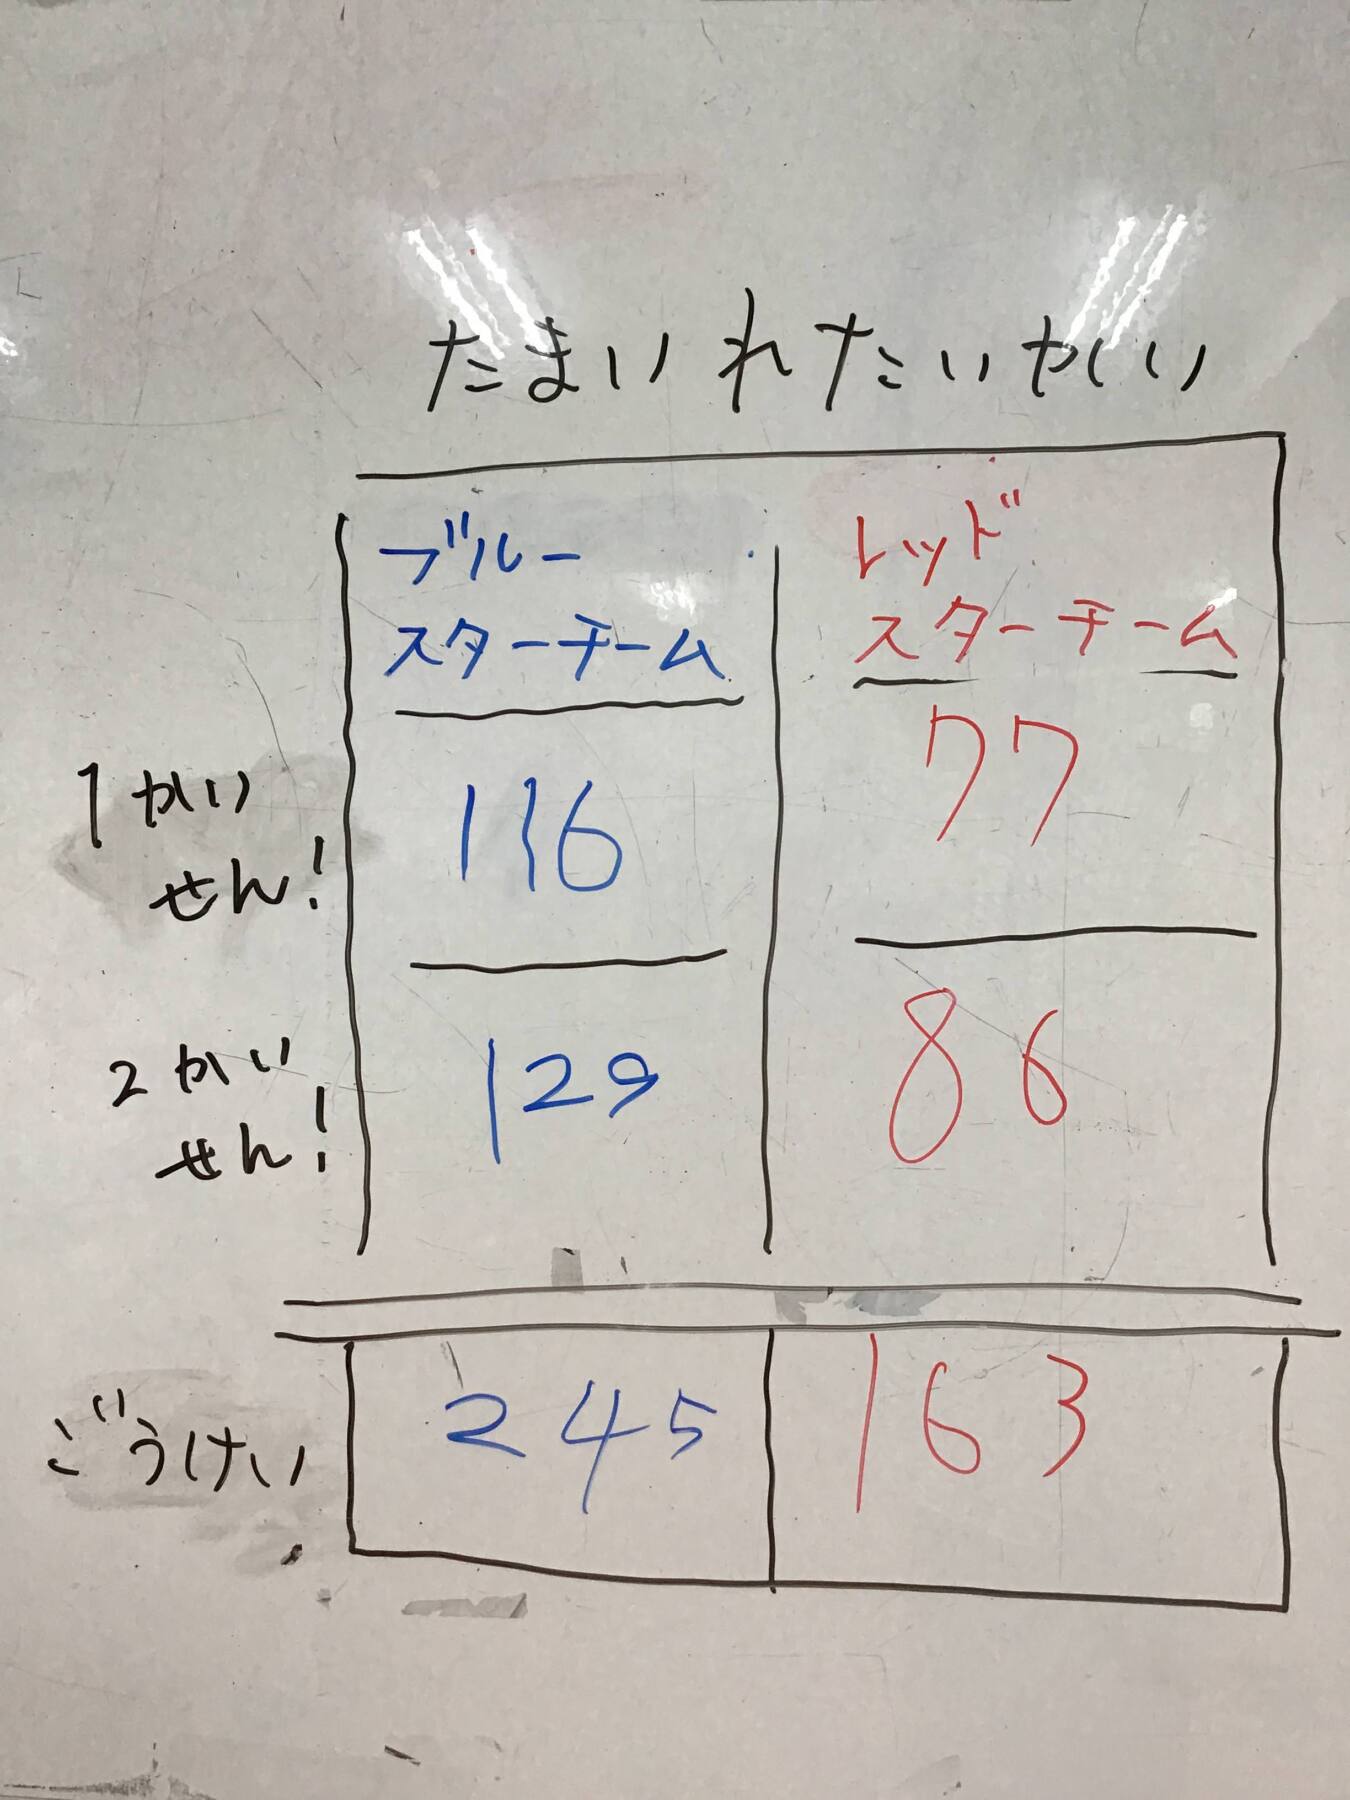 たまいれたいかい
ブルー
スターチーム
レッド
スターチーム
1かい
せん!
116
77
2かい
せん!
129
86
ごうけい
245
163